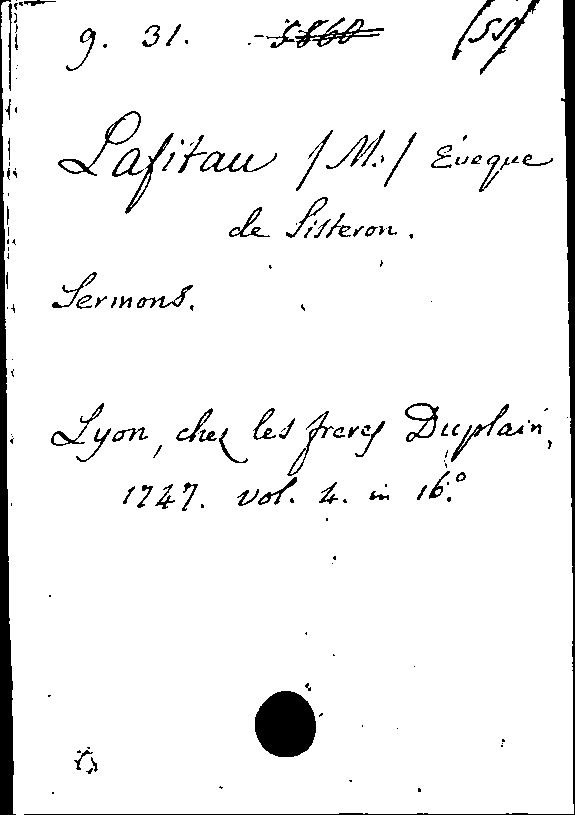 g. 31. 5860 /55/
Lafitau /M./ Evêque
de Sisteron.
Sermons.
Lyon, chez les freres Duplain,
1747. vol. 4. in 16.º